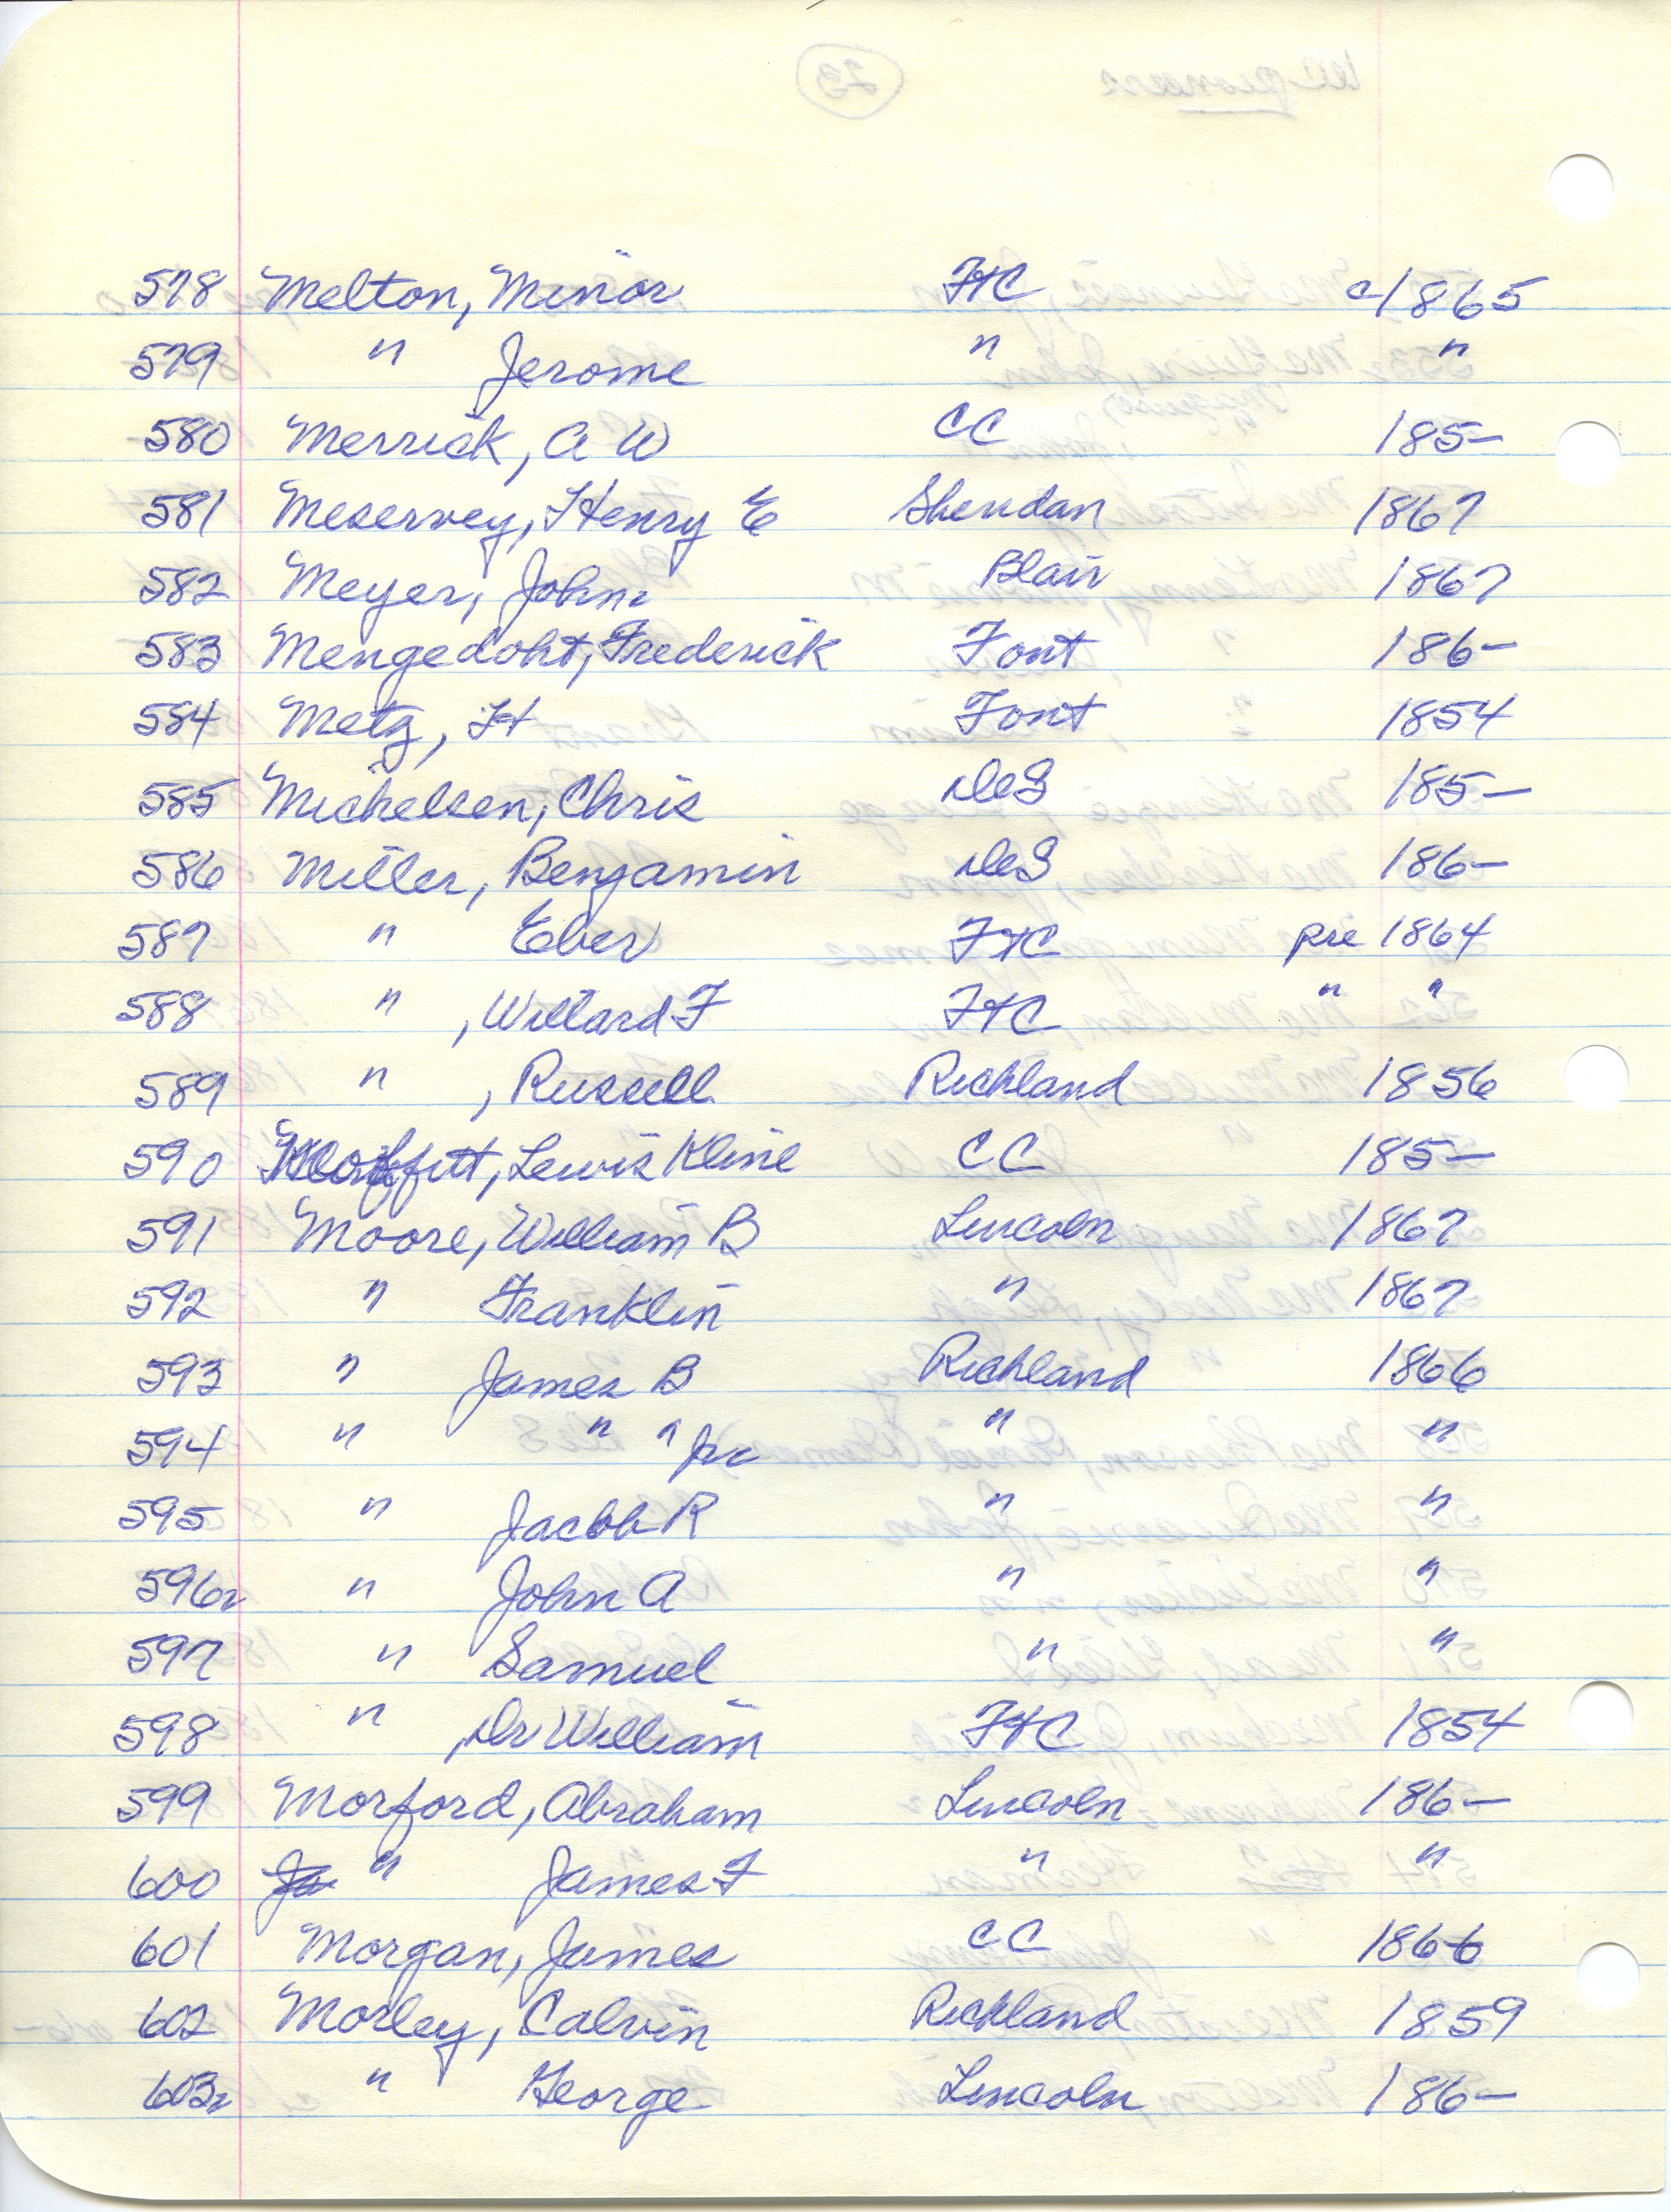 578 Melton, Minor FtC c1865
579 " Jerome " "
580 Merrick, A W CC 185-
581 Meservey, Henry E Sheridan 1867
582 Meyer, John Blair 1867
583 Mengedoht, Frederick Font 186-
584 Metz, H Font 1854
585 Michelsen, Chris DeS 185-
586 Miller, Benjamin DeS 186-
587 " Eber FtC pre 1864
588 " , Willard F FtC " "
589 " , Russell Richland 1856
590 Moffitt, Lewis Kline CC 185-
591 Moore, William B Lincoln 1867
592 " Franklin " 1867
593 " James B Richland 1866
594 " " " Jr " "
595 " Jacob R " "
596 " John A " "
597 " Samuel " "
598 " , Dr William FtC 1854
599 Morford, Abraham Lincoln 186-
600 Ja " James F " "
601 Morgan, James CC 1866
602 Morley, Calvin Richland 1859
603 " George Lincoln 186-